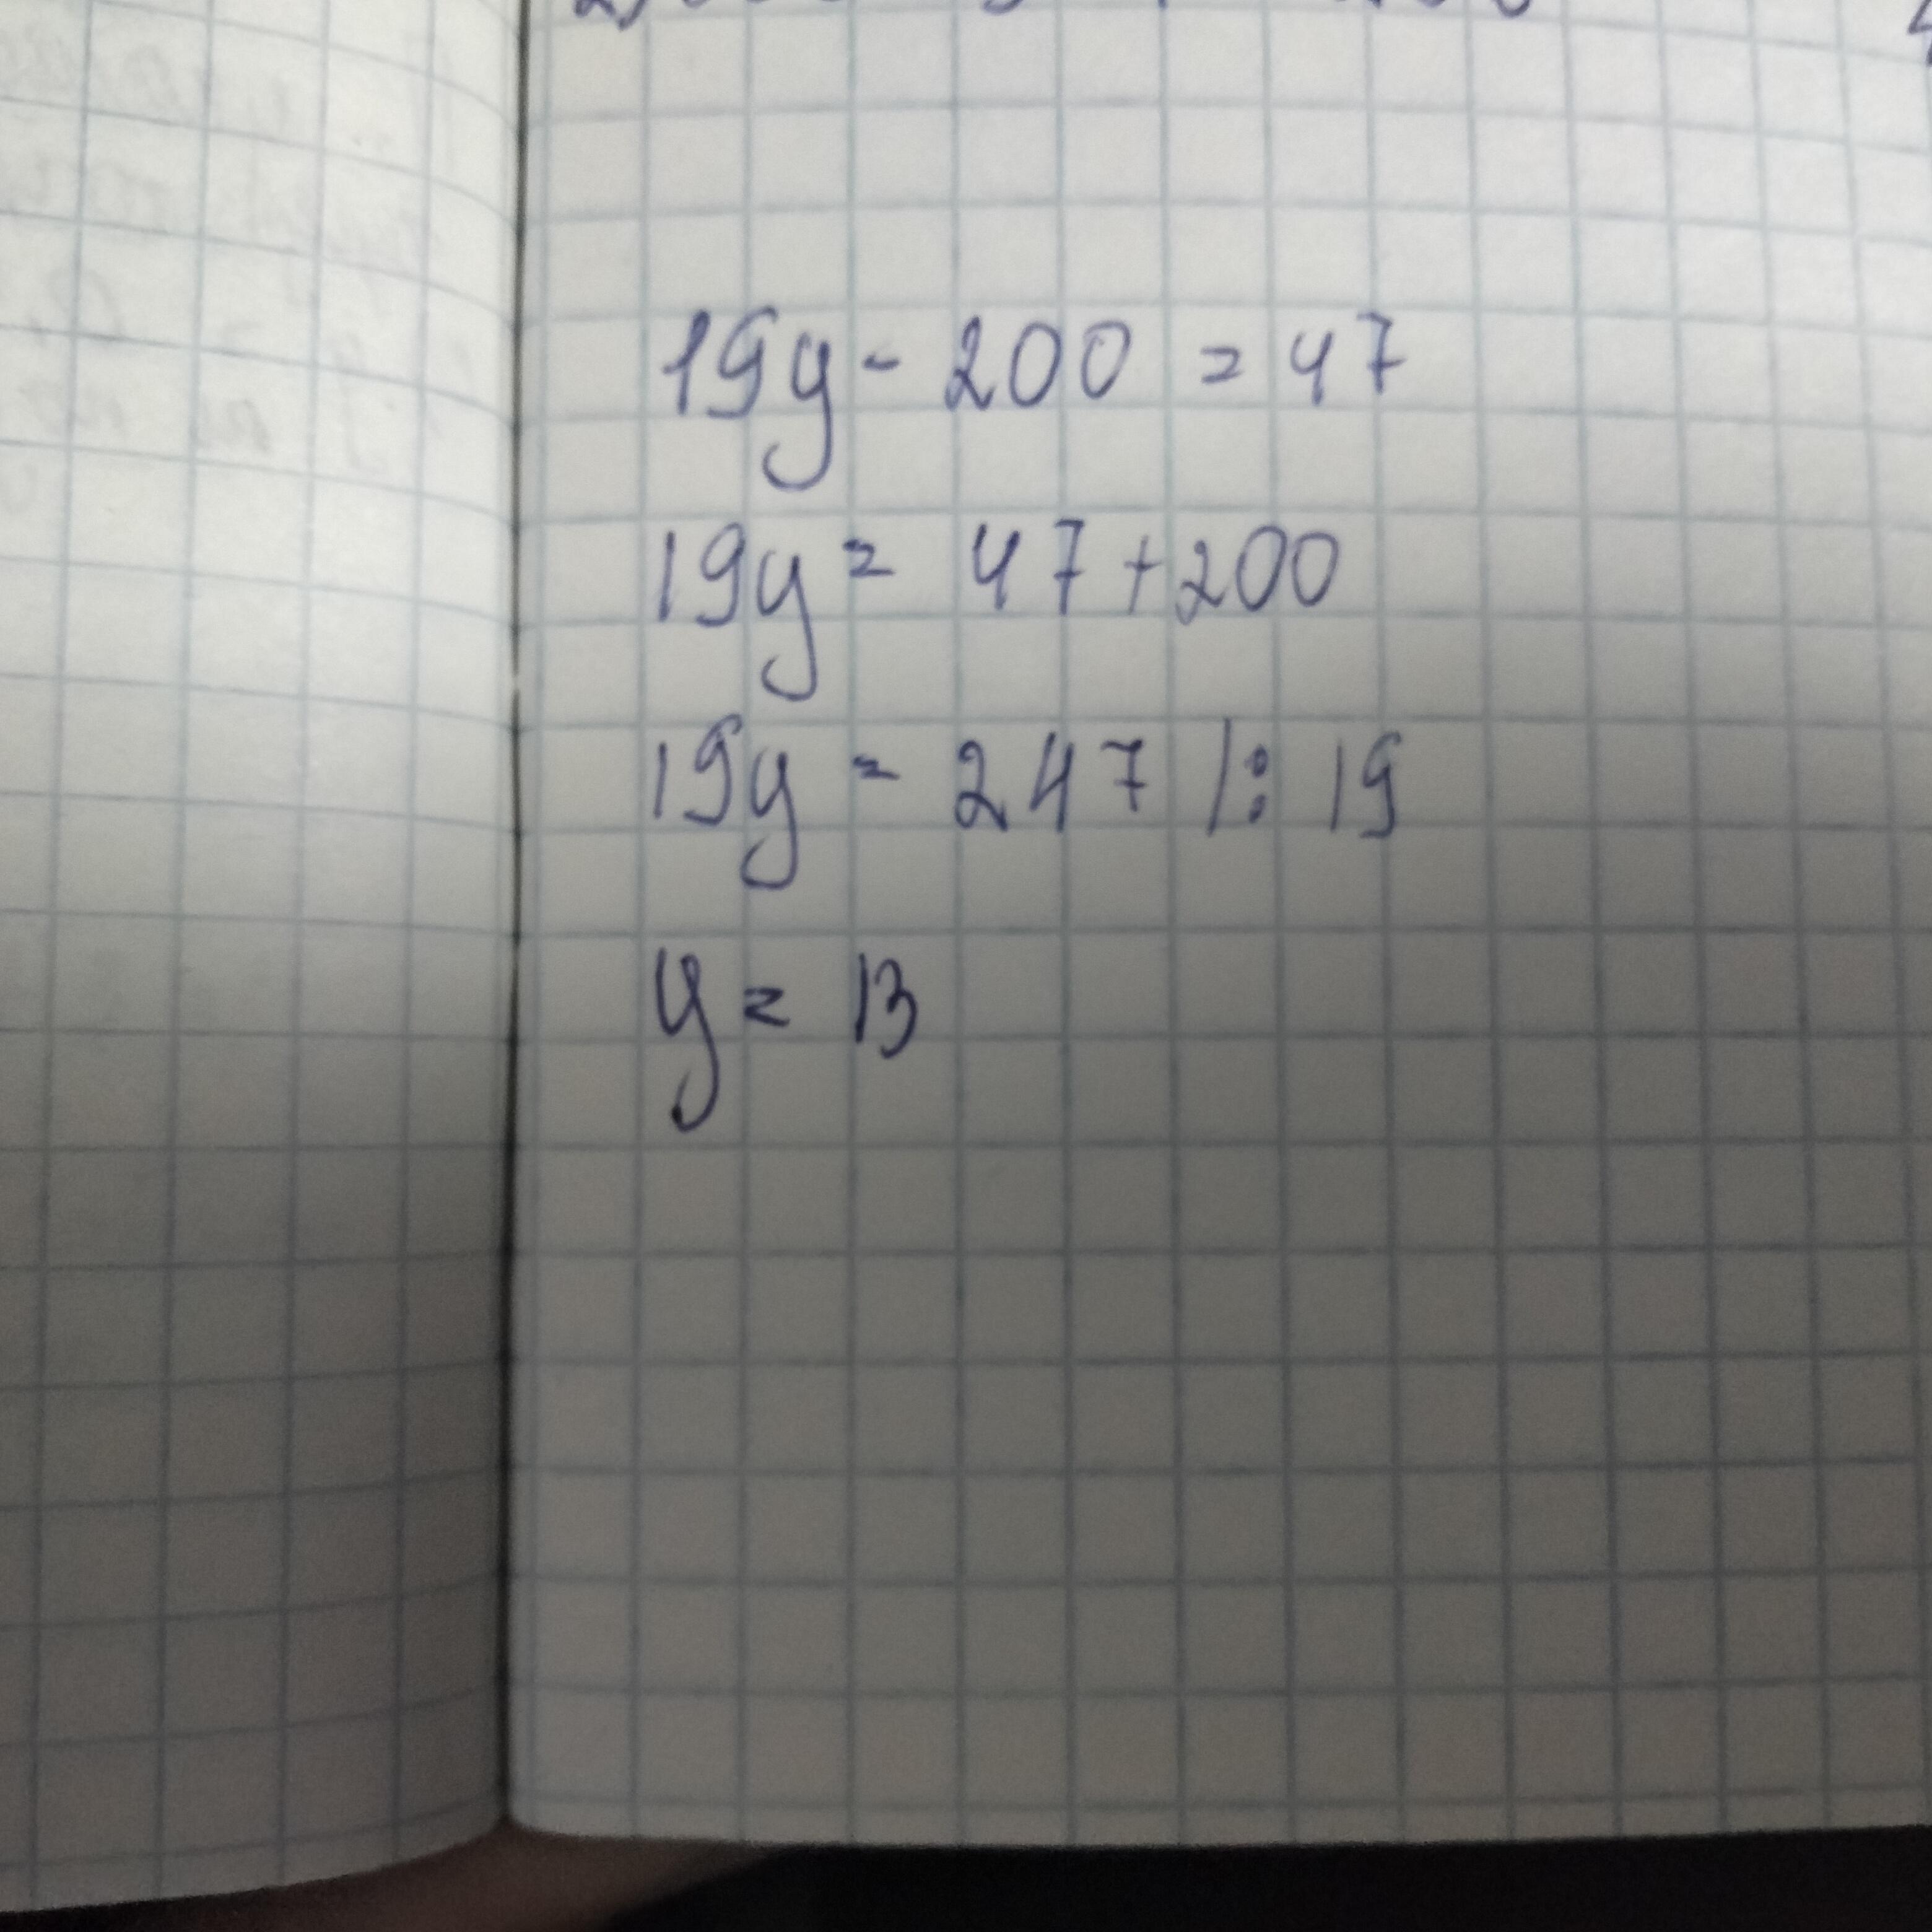 19y - 200 = 47
19y = 47 + 200
19y = 247 |: 19
y = 13